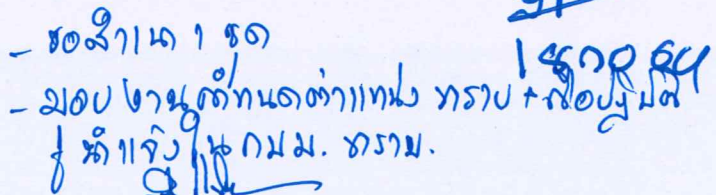 - ขอสำเนา 1 ชุด
- มอบ งานกำหนดตำแหน่ง ทราบ + ถือปฏิบัติ
นำแจ้งใน กบม. ทราบ.